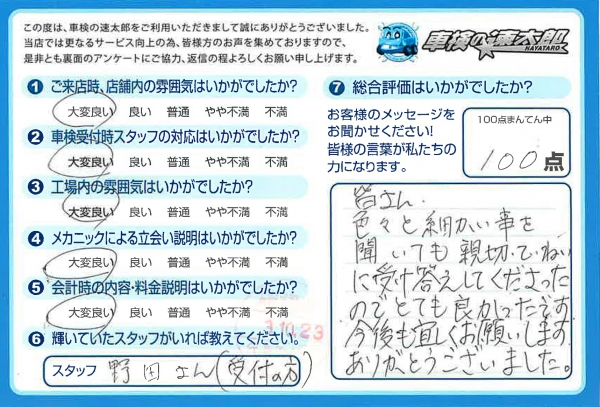 この度は、車検の速太郎をご利用いただきまして誠にありがとうございました。
当店では更なるサービス向上の為、皆様方のお声を集めておりますので、
是非とも裏面のアンケートにご協力、返信の程よろしくお願い申し上げます。
車検の速太郎
HAYATARO
1 ご来店時、店舗内の雰囲気はいかがでしたか?
大変良い 良い 普通 やや不満 不満
2 車検受付時スタッフの対応はいかがでしたか?
大変良い 良い 普通 やや不満 不満
3 工場内の雰囲気はいかがでしたか?
大変良い 良い 普通 やや不満 不満
4 メカニックによる立会い説明はいかがでしたか?
大変良い 良い 普通 やや不満 不満
5 会計時の内容・料金説明はいかがでしたか?
大変良い 良い 普通 やや不満 不満
3.10.23
6 輝いていたスタッフがいれば教えてください。
スタッフ 野田さん(受付の方)
7 総合評価はいかがでしたか?
お客様のメッセージを
お聞かせください!
皆様の言葉が私たちの
力になります。
100点まんてん中
100点
皆さん、
色々と細かい事を
聞いても親切、ていねい
に受け答えしてくださった
のでとても良かったです
今後も宜しくお願いします
ありがとうございました。